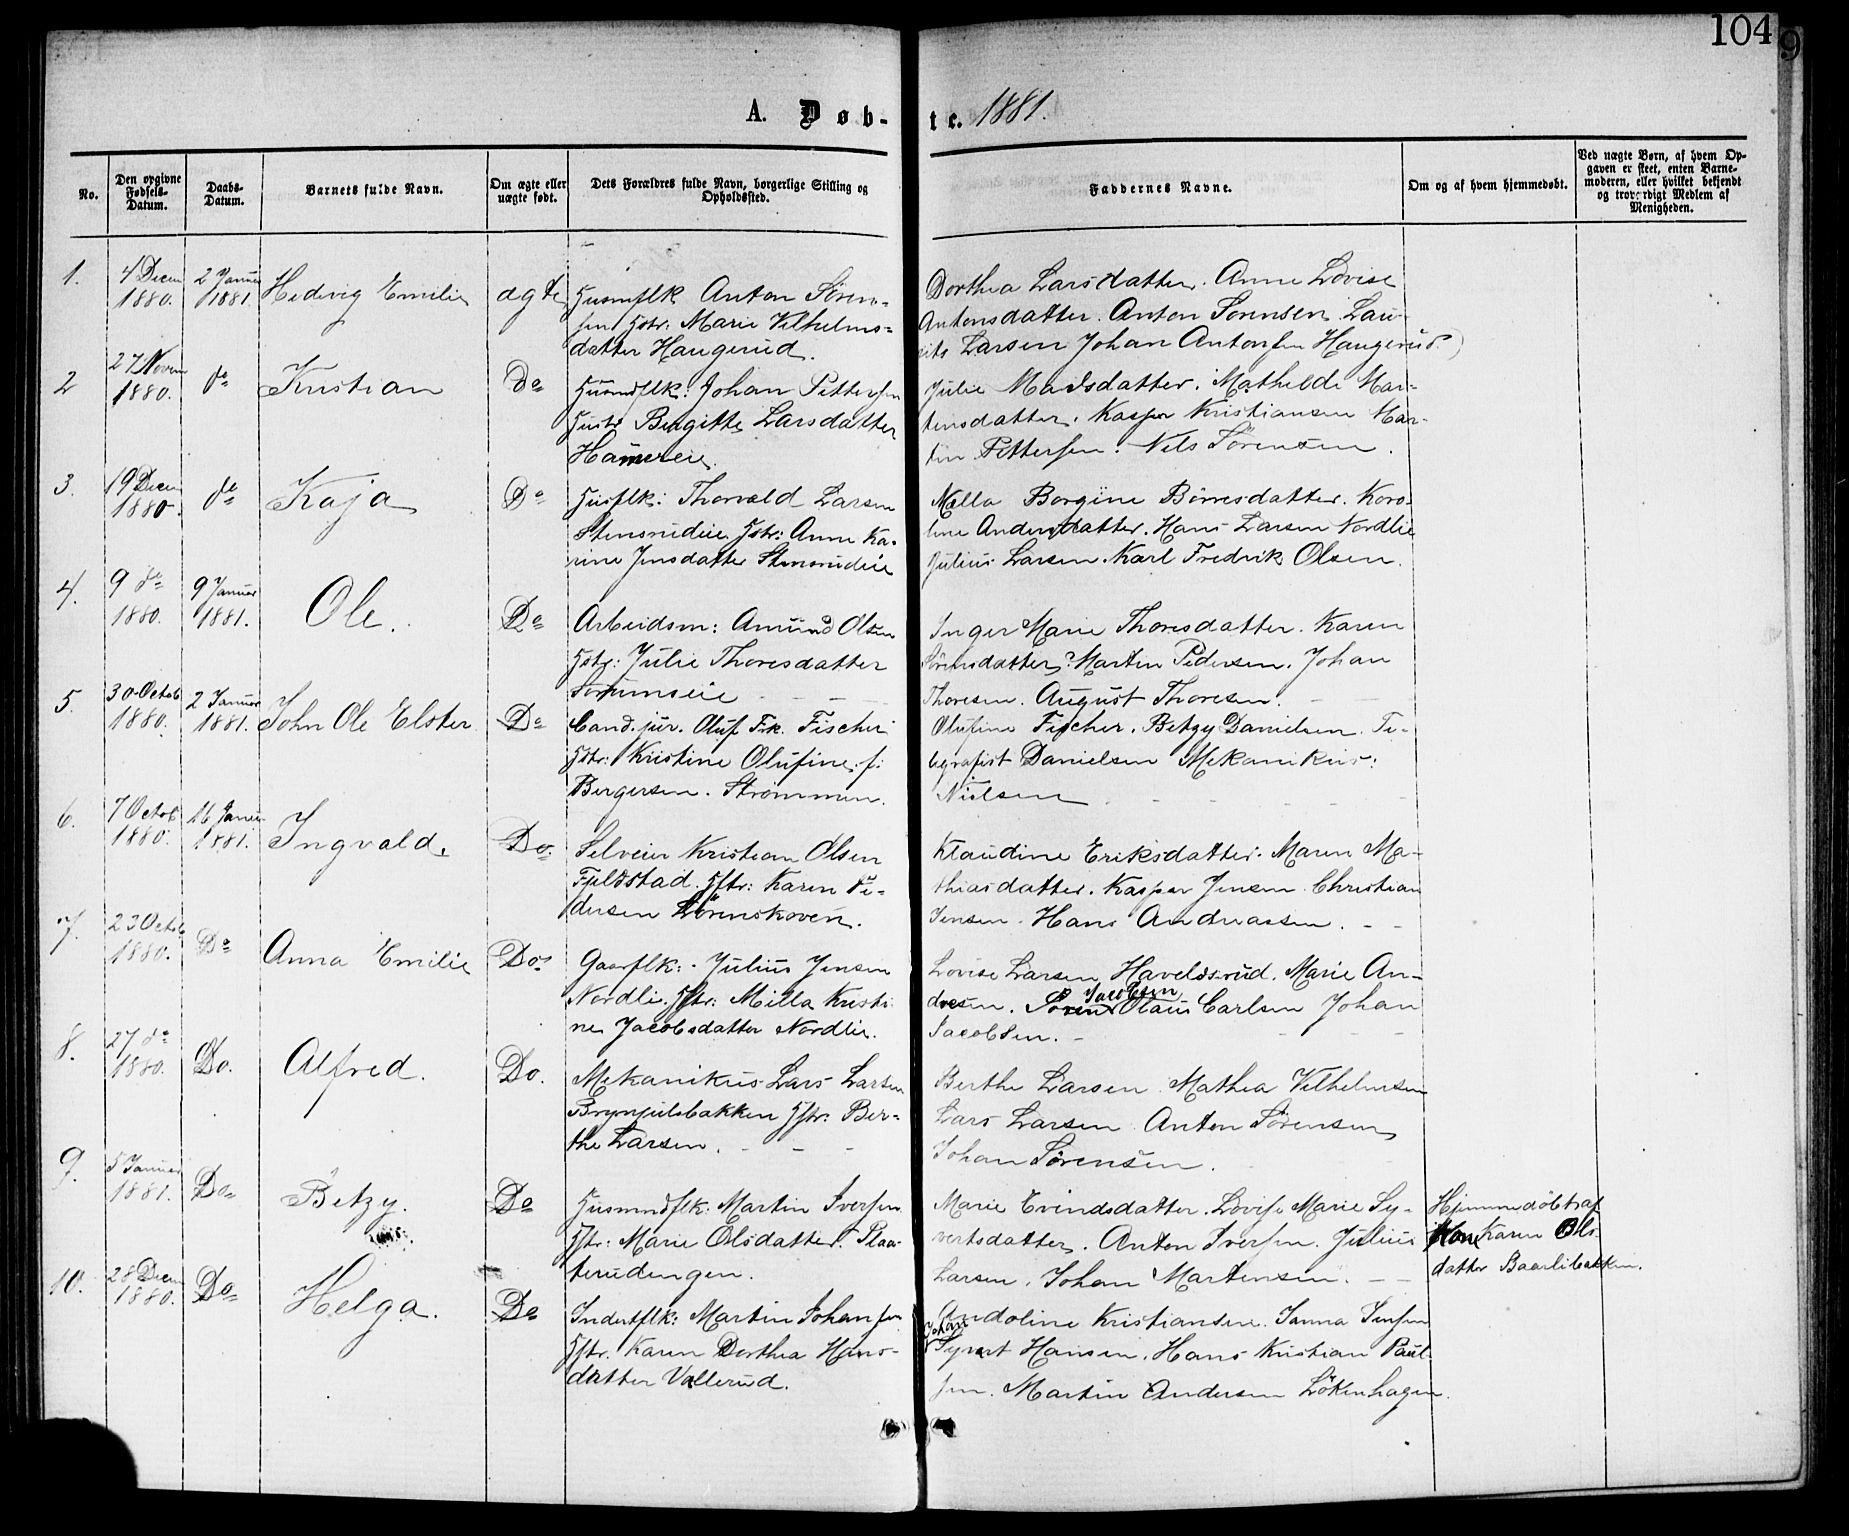 104
9
A. Døb-
te. 1881.
No.
Den opgivne Fødsels-Datum.
Daabs-Datum.
Barnets fulde Navn.
Om ægte eller uægte født.
Dets Forældres fulde Navn, borgerlige Stilling og Opholdssted.
Faddernes Navne.
Om og af hvem hjemmedøbt.
Ved uægte Børn, af hvem Opgaven er skeet, enten Barnemoderen, eller hvilket bekjendt og troværdigt Medlem af Menigheden.
1.
4 Decem 1880.
2 Januar 1881.
Hedevig Emilie
ægte
Husmflk Anton Sören-
sen Hstr: Marie Vilhelms-
datter Haugerud.
Dorthea Larsdatter. Anne Lovise
Antonsdatter. Anton Sörensen Lau-
rits Larsen Johan Antonsen Haugerud.
2
27 Novem 1880.
do
Kristian
Do
Husmdflk: Johan Pettersen
Hustr Birgitte Larsdatter
Hammereie.
Julie Madsdatter. Mathilde Mar-
tinsdatter. Kasper Kristiansen Mar-
tin Pettersen. Nils Sörensen.
3.
19 Decem 1880.
do
Kaja
Do
Husflk: Thorvald Larsen
Stensrudeie Hstr: Anne Ka-
rine Jensdatter Stensrudeie
Mella Borgine Börresdatter. Karo-
line Andersdatter. Hans Larsen Nordlie
Julius Larsen. Karl Fredrik Olsen.
4.
9 do 1880.
9 Januar 1881.
Ole.
Do
Arbeidsm: Amund Olsen
Hstr: Julie Thoresdatter
Sörumseie
Inger Marie Thoresdatter. Karen
Sörensdatter. Martin Pedersen. Johan
Thoresen. August Thoresen.
5.
30 Octob 1880.
2 Januar 1881.
John Ole Elster
Do
Cand. jur. Oluf Frk. Fischer
Hstr: Kristine Olufine f:
Bergersen. Strömmen.
Olufine Fischer. Betzy Danielsen. Te-
legrafist Danielsen Mekanikus:
Nielsen
6.
7 Octob 1880.
16 Januar 1881.
Ingvald.
Do.
Selveier Kristian Olsen
Fjeldstad. Hstr: Karen Pe-
dersen Lörenskoven.
Klaudine Eriksdatter. Maren Ma-
thiasdatter. Kasper Jensen. Christian
Jensen. Hans Andreassen.
7.
23 Octob 1880.
Do
Anna Emilie
Do
Gaarflk: Julius Jensen
Nordlie. Hstr: Milla Kristi-
ne Jacobsdatter Nordlie.
Lovise Larsen Haveldsrud. Marie An-
dresen. Sören Jacobsen Olaus Carlsen Johan
Jacobsen.
8.
27 do 1880.
Do.
Alfred.
Do.
Mekanikus Lars Larsen
Brynjulsbakken Hstr: Ber-
the Larsen.
Berthe Larsen Mathea Vilhelmsen
Lars Larsen Anton Sörensen
Johan Sörensen.
9.
5 Januar 1881.
Do
Betzy.
Do
Husmndflk: Martin Iversen
Hstr: Marie Olsdatter. Plaa-
terudengen.
Marie Evindsdatter. Lovise Marie Sy-
vertsdatter. Anton Iversen. Julius
Larsen. Johan Martensen.
Hjemmedöbt af
Karen Ols-
datter Baarlibakken.
10.
28 Decem 1880.
Do
Helga.
Do
Inderstflk: Martin Johansen
Hstr. Karen Dorthea Hans-
datter Vallerud.
Andoline Kristiansen. Janna Jensen
Johan Syvert Hansen. Hans Kristian Paul-
sen. Martin Andersen Lökenhagen.